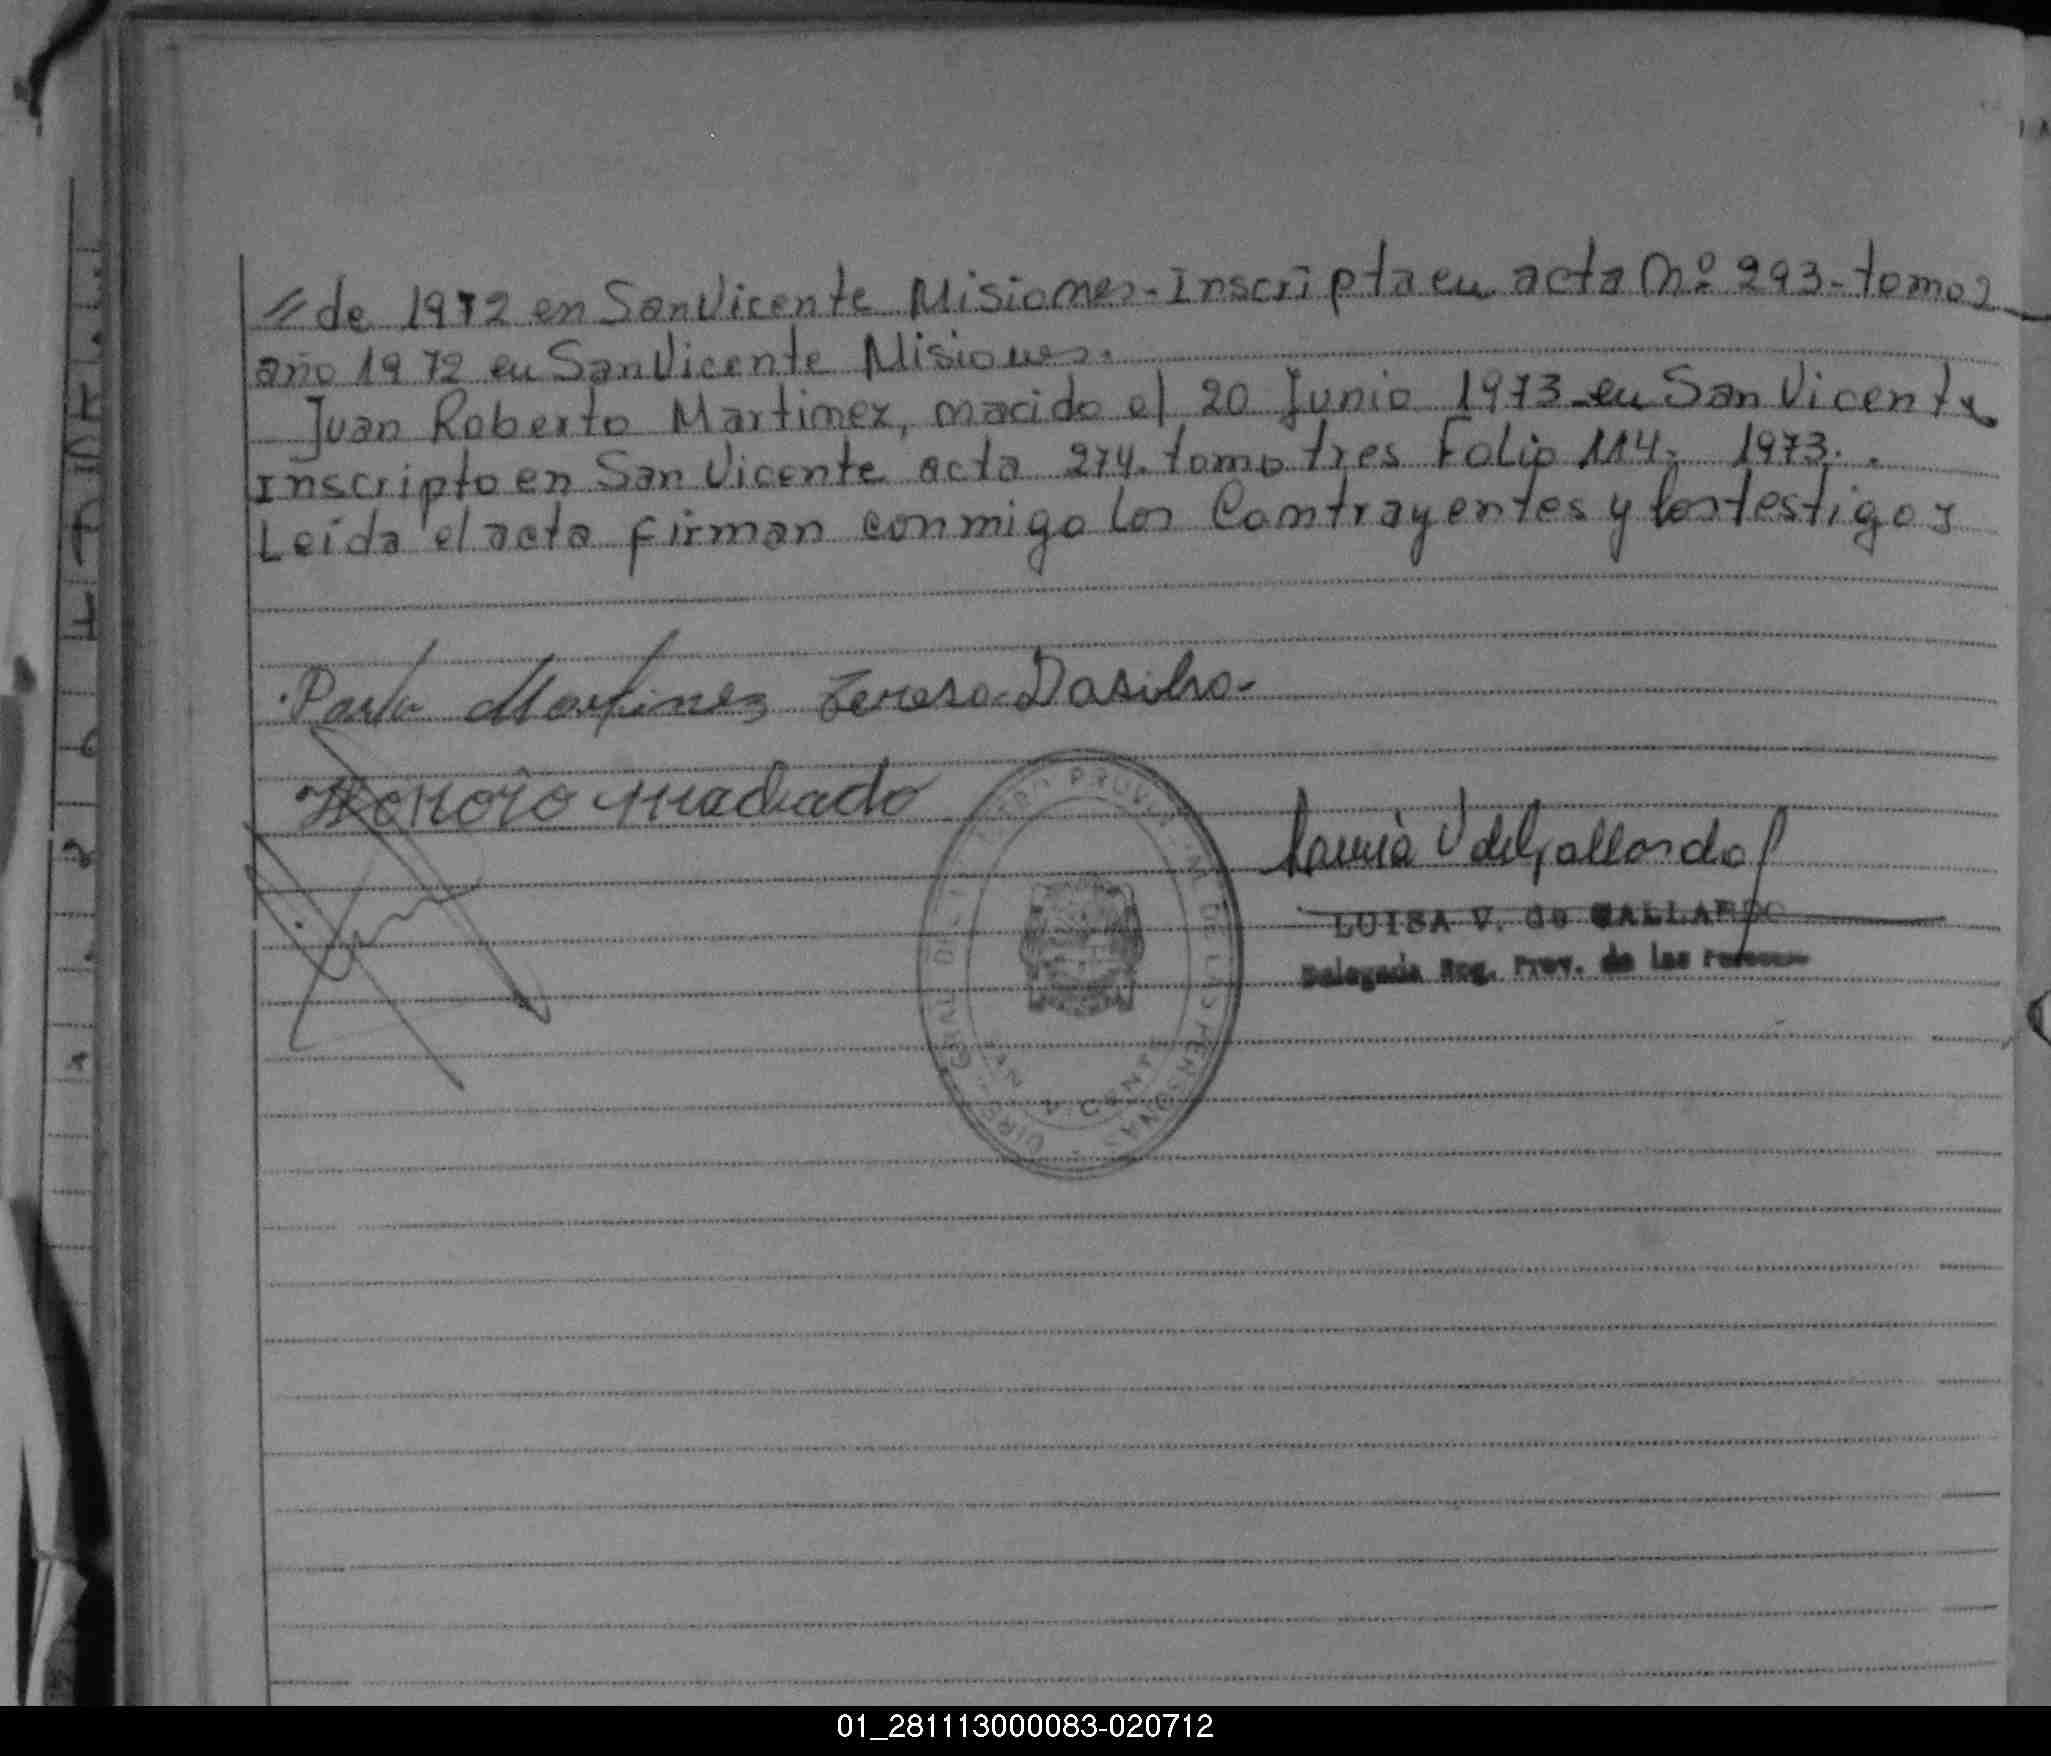 // de 1972 en San Vicente Misiones - Inscripta en acta Nº 293 - tomo 2
año 1972 en San Vicente Misiones.
Juan Roberto Martinez, nacido el 20 Junio 1973 - en San Vicente
Inscripto en San Vicente acta 274. tomo tres Folio 114. 1973. .
Leída el acta firman conmigo los Contrayentes y los testigos
Martinez Teresa Dasilva -
Honorio Machado
V de Gallardo
LUISA V. de GALLARDO
Delegada Reg. Prov. de las Personas
DE LAS PERSONAS
SAN VICENTE
01_281113000083-020712